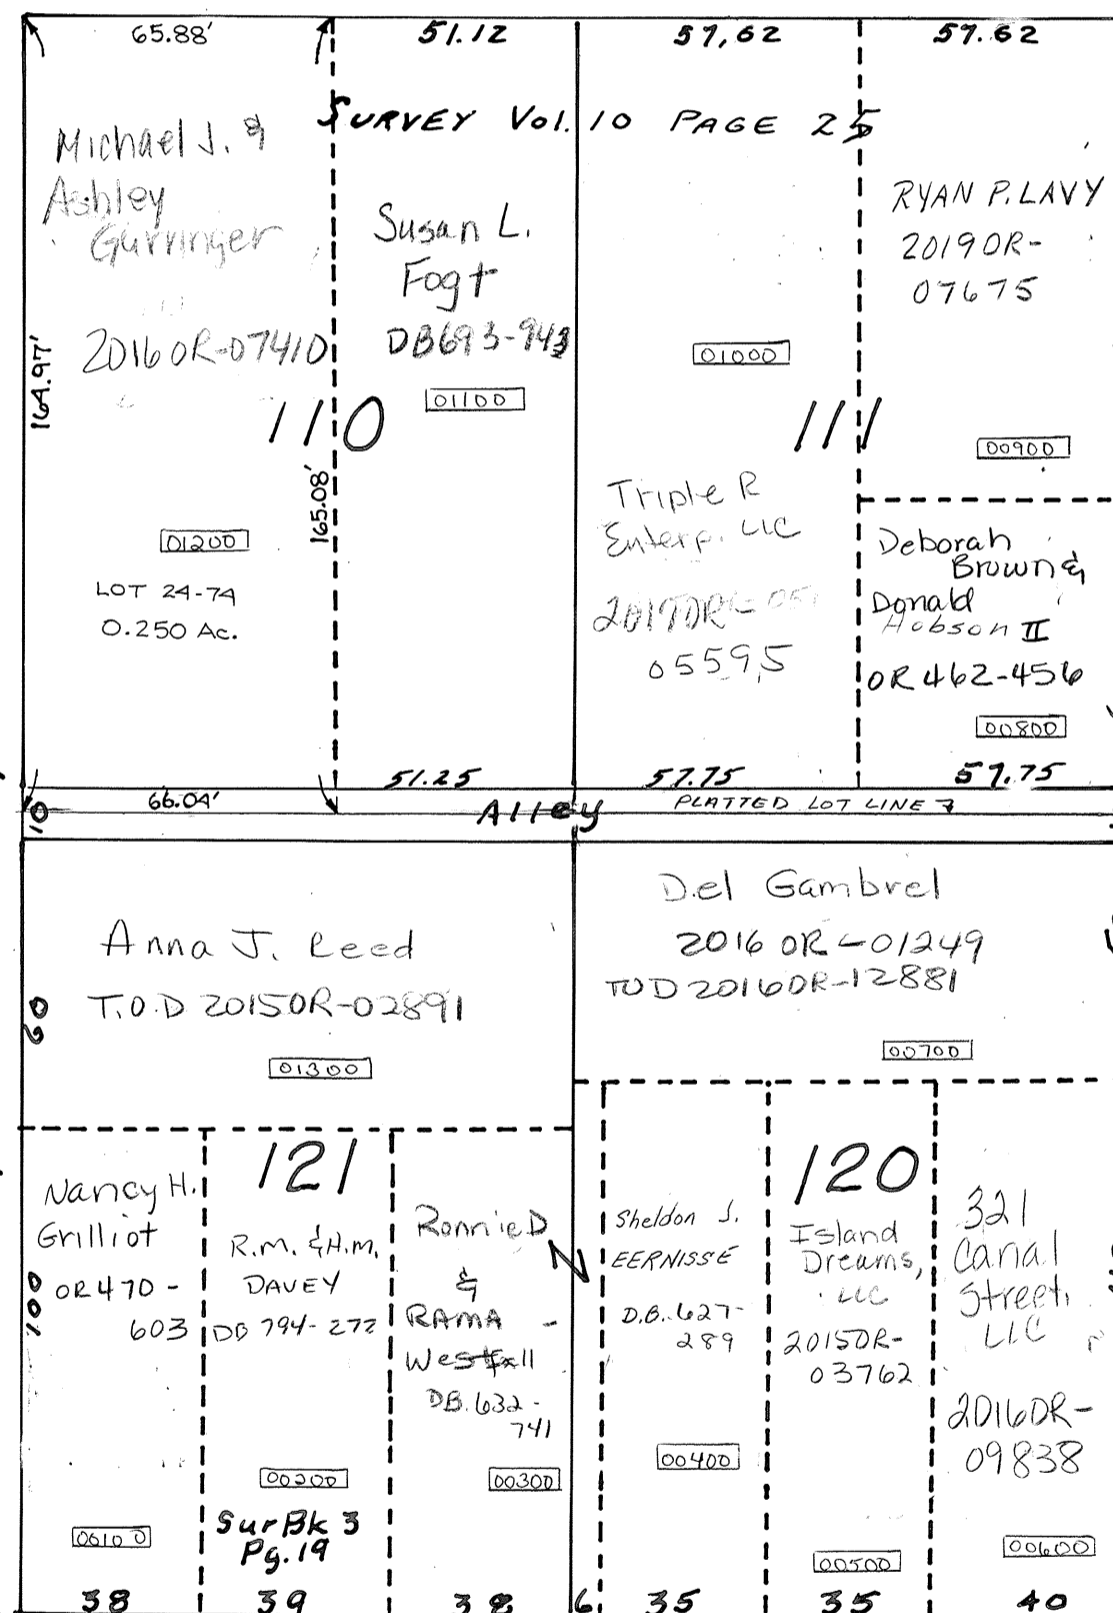 65.88'
51.12
57,62
57.62
SURVEY Vol. 10 PAGE 25
Michael J. &
Ashley
Garringer
2016 OR-07410
164.97'
110
165.08'
01200
LOT 24-74
0.250 Ac.
66.04'
Susan L.
Fogt
DB693-943
01100
51.25
01000
111
Triple R
Enterp. LLC
2019OR-05
05595
57.75
RYAN P. LAVY
2019OR-
07675
00900
Deborah
Brown &
Donald
Hobson II
OR 462-456
00800
57.75
10
Alley
PLATTED LOT LINE
Anna J. Reed
T.O.D 2015OR-02891
60
01300
Del Gambrel
2016 OR-01249
TOD 2016OR-12881
00700
121
Nancy H.
Grilliot
OR 470-
603
100
00100
38
R.M. & H.M.
DAVEY
DB 794-272
00200
Sur Bk 3
Pg. 19
39
Ronnie D
&
RAMA
Westfall
DB. 632-
741
00300
38
N
6
120
Sheldon J.
EERNISSE
D.B. 627-
289
00400
35
Island
Dreams,
LLC
2015OR-
03762
00500
35
321
Canal
Street,
LLC
2016OR-
09838
00600
40